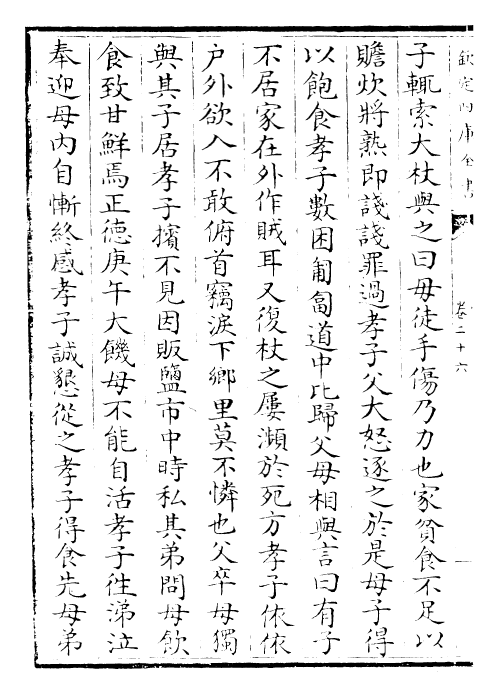 欽定四庫全書
卷二十六
子輒索大杖與之曰毋徒手傷乃力也家貧食不足以
贍炊將熟即諓諓罪過孝子父大怒逐之於是母子得
以飽食孝子數困匍匐道中比歸父母相與言曰有子
不居家在外作賊耳又復杖之屢瀕於死方孝子依依
户外欲入不敢俯首竊淚下鄉里莫不憐也父卒母獨
與其子居孝子擯不見因販鹽市中時私其弟問母飲
食致甘鮮焉正德庚午大饑母不能自活孝子徃涕泣
奉迎母内自慚終感孝子誠懇從之孝子得食先母弟